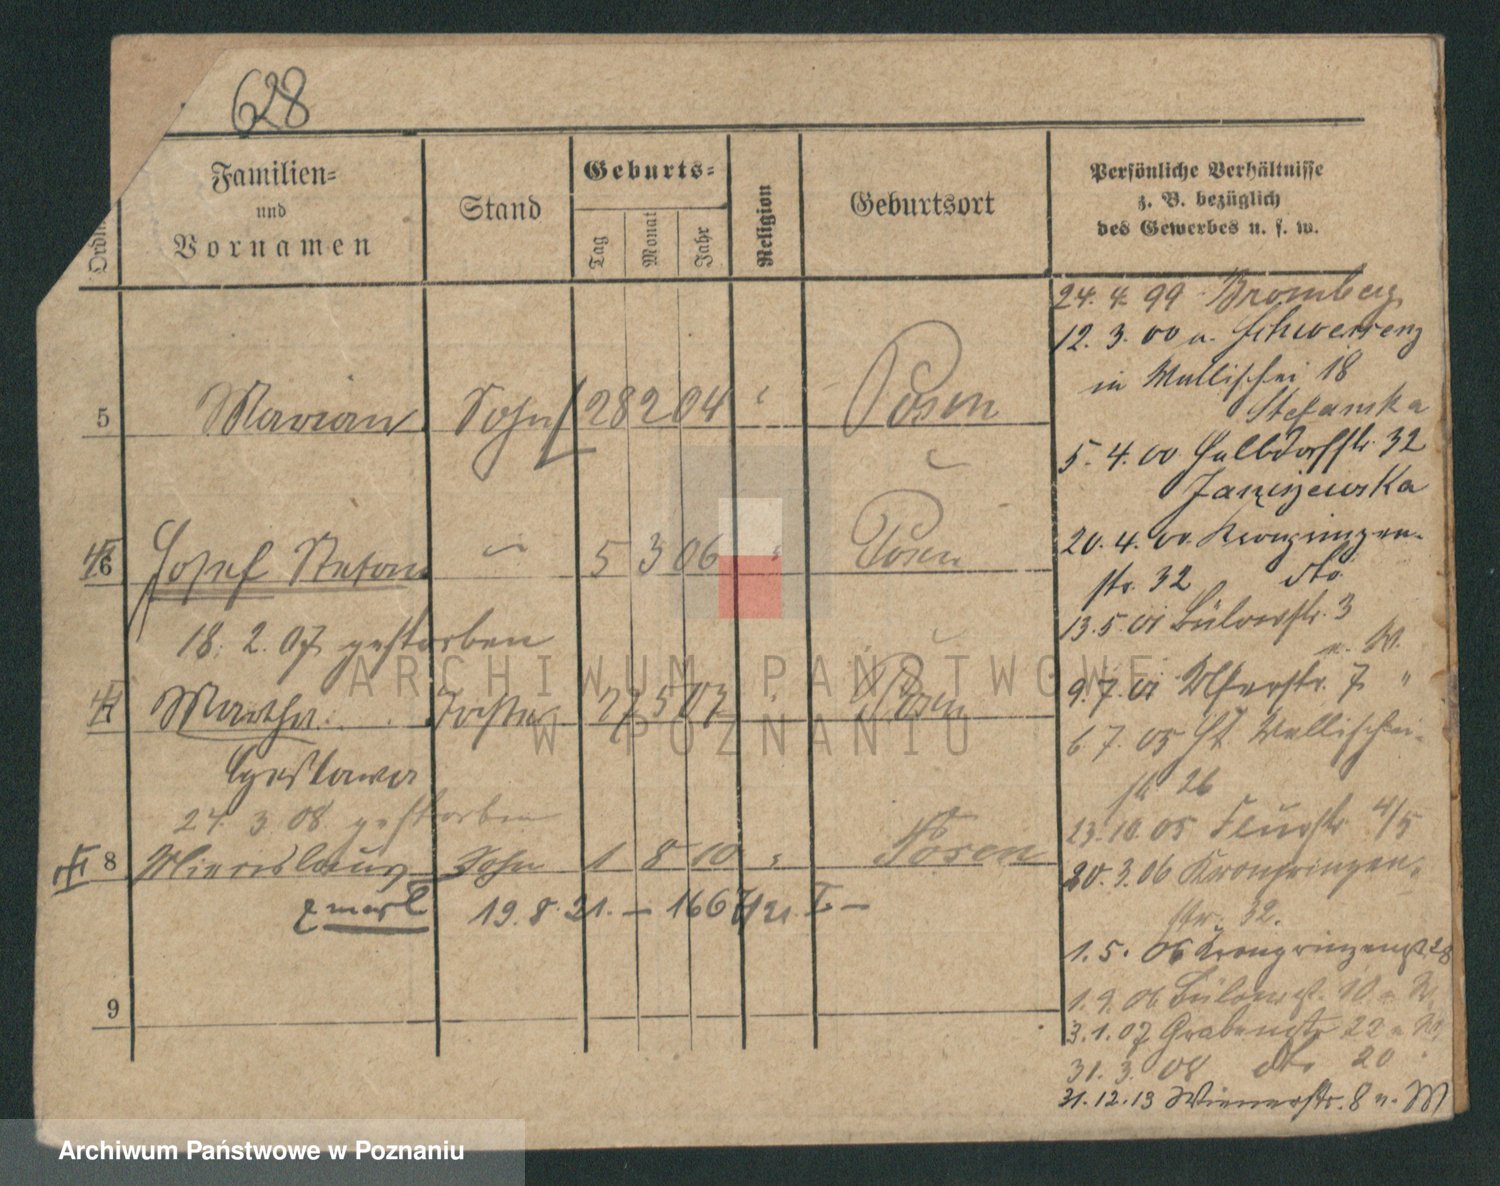 628
Familien=
und
Vornamen
Stand
Geburts=
Tag
Monat
Jahr
Religion
Geburtsort
Persönliche Verhältnisse
z. B. bezüglich
des Gewerbes u. s. w.
5 Marian Sohn 28 2 04 Posen
6 Josef Stefan 5 3 06 Posen
18. 2. 07 gestorben
Martha Tochter 27 5 07 Posen
Czeslawa
24. 3. 08. gestorben
8 Miecislaus Sohn 1 8 10 Posen
zmarł 19. 8. 21. –
9
24. 4. 99 Bromberg
12. 3. 00 n. Schwersenz
in Wallischei 18
Stefanska
5. 4. 00 Halbdorfstr. 32
Janiszewska
20. 4. 00 Kronprinzen-
str. 32 dto
13. 5. 01 Bülowstr. 3
n. W.
9. 7. 01 7 "
6 7. 05 Wallischei-
26
23. 10. 05 4/5
20. 3. 06 Kronprinzen-
str. 32.
1. 5. 06 Kronprinzenst. 28
1. 9. 06 Bülowst. 10 n W.
3. 1. 07 Grabenstr 22 n W.
31. 3. 08 dto 20
31. 12. 13 Wienerstr. 8 n. W
ARCHIWUM PAŃSTWOWE
W POZNANIU
Archiwum Państwowe w Poznaniu